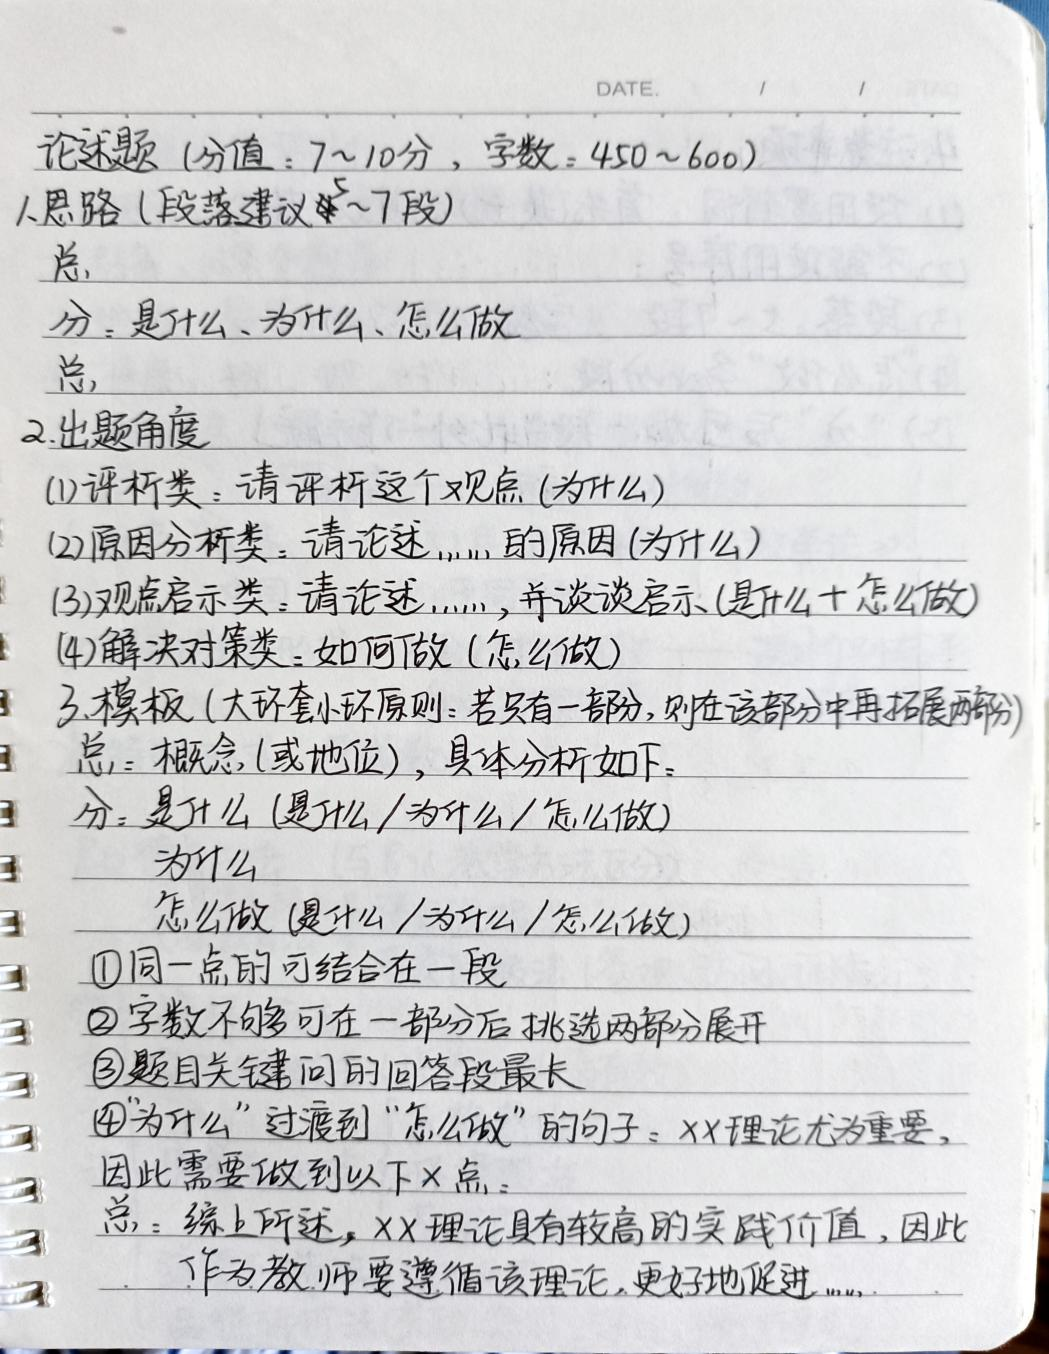 DATE. / /
论述题（分值：7～10分，字数：450～600）
1.思路（段落建议5～7段）
总：
分：是什么、为什么、怎么做
总：
2.出题角度
(1)评析类：请评析这个观点（为什么）
(2)原因分析类：请论述……的原因（为什么）
(3)观点启示类：请论述……，并谈谈启示（是什么＋怎么做）
(4)解决对策类：如何做（怎么做）
3.模板（大环套小环原则：若只有一部分，则在该部分中再拓展两部分）
总：概念（或地位），具体分析如下：
分：是什么（是什么/为什么/怎么做）
为什么
怎么做（是什么/为什么/怎么做）
①同一点的可结合在一段
②字数不够可在一部分后挑选两部分展开
③题目关键问的回答段最长
④“为什么”过渡到“怎么做”的句子：XX理论尤为重要，
因此需要做到以下X点：
总：综上所述，XX理论具有较高的实践价值，因此
作为教师要遵循该理论，更好地促进……